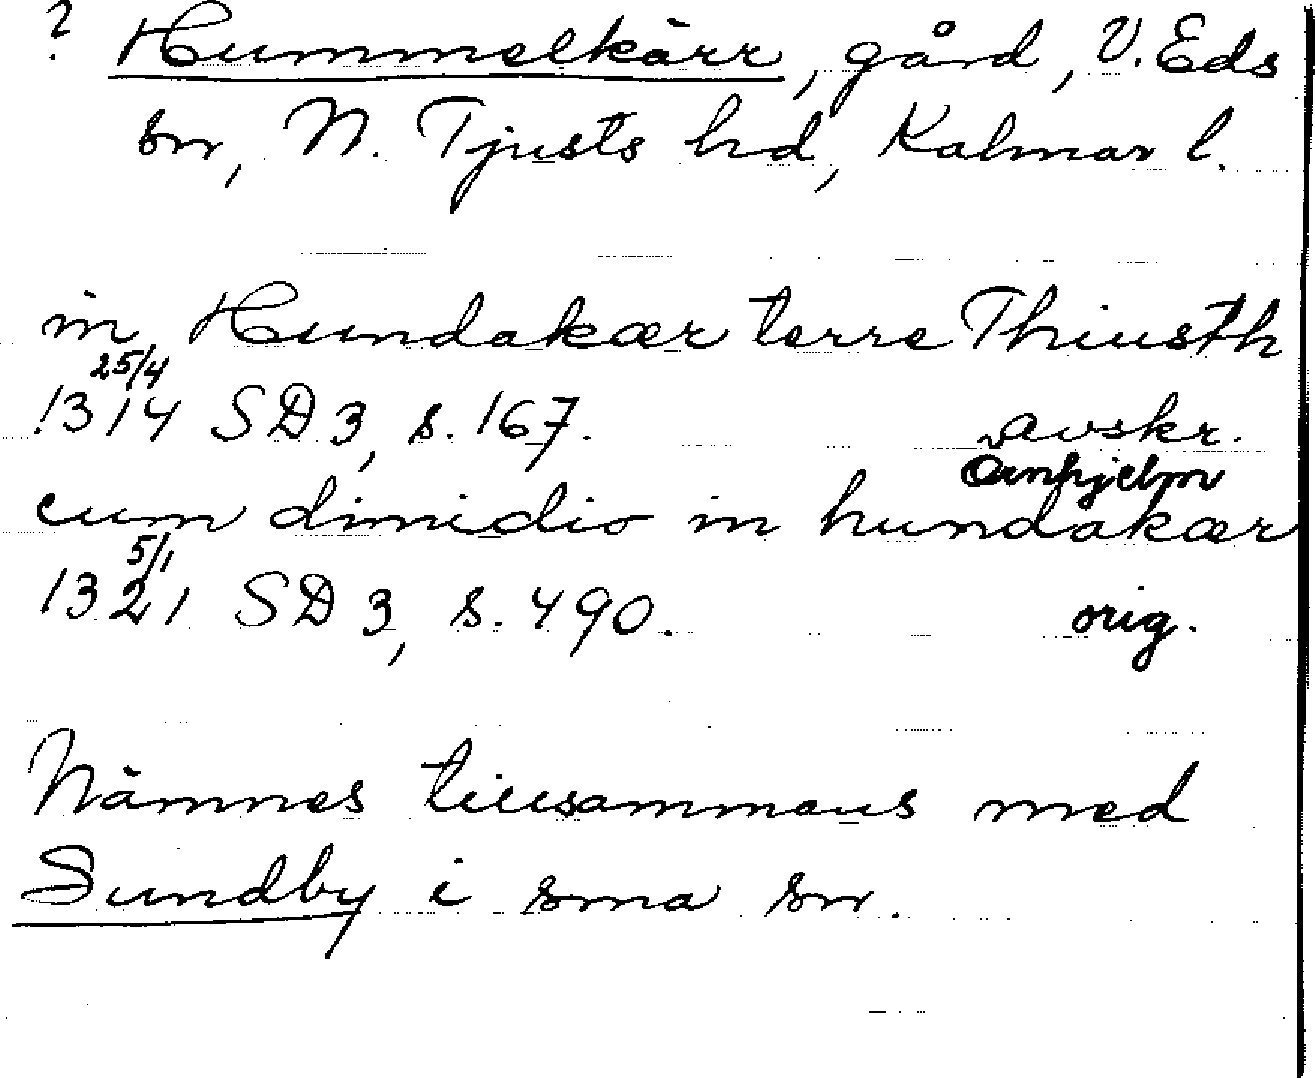 ? Hummelkärr, gård, V. Eds
sn, N. Tjusts hd, Kalmar l.
in Hundakær terre Thiusth
25/4
1314 SD 3, s. 167. avskr.
Örnhjelm
cum dimidio in hundakær
5/1
1321 SD 3, s. 490. orig.
Nämnes tillsammans med
Sundby i sma sn.